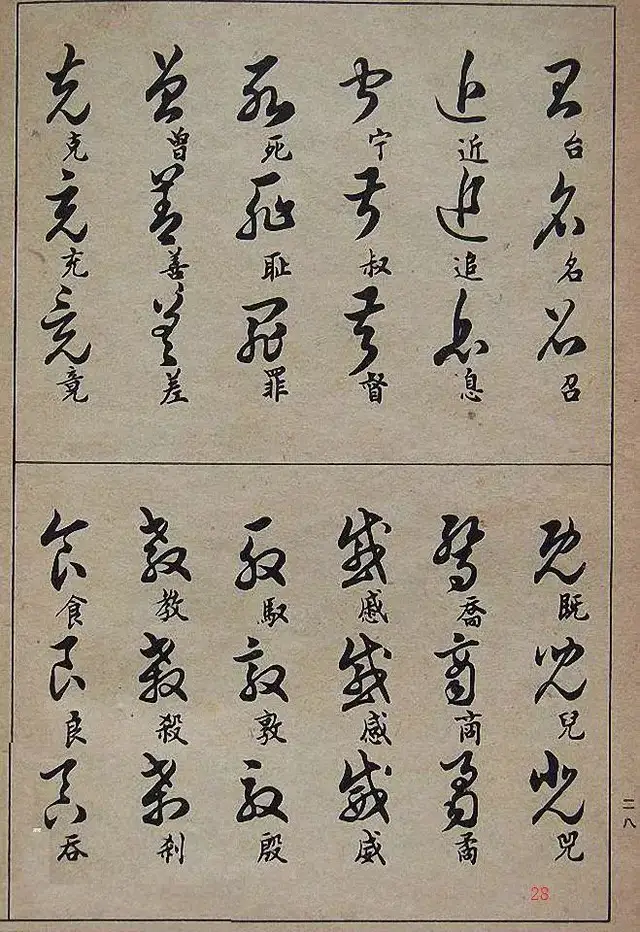 台名召
近追息
宁叔督
死耻罪
曾善差
克充竟
既兒兕
喬商矞
戚感威
馭敦殷
教殺刹
食良吞
二八
28